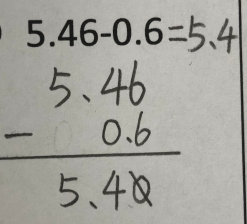 5.46-0.6=5.4
5.46
- 0.6
5.40